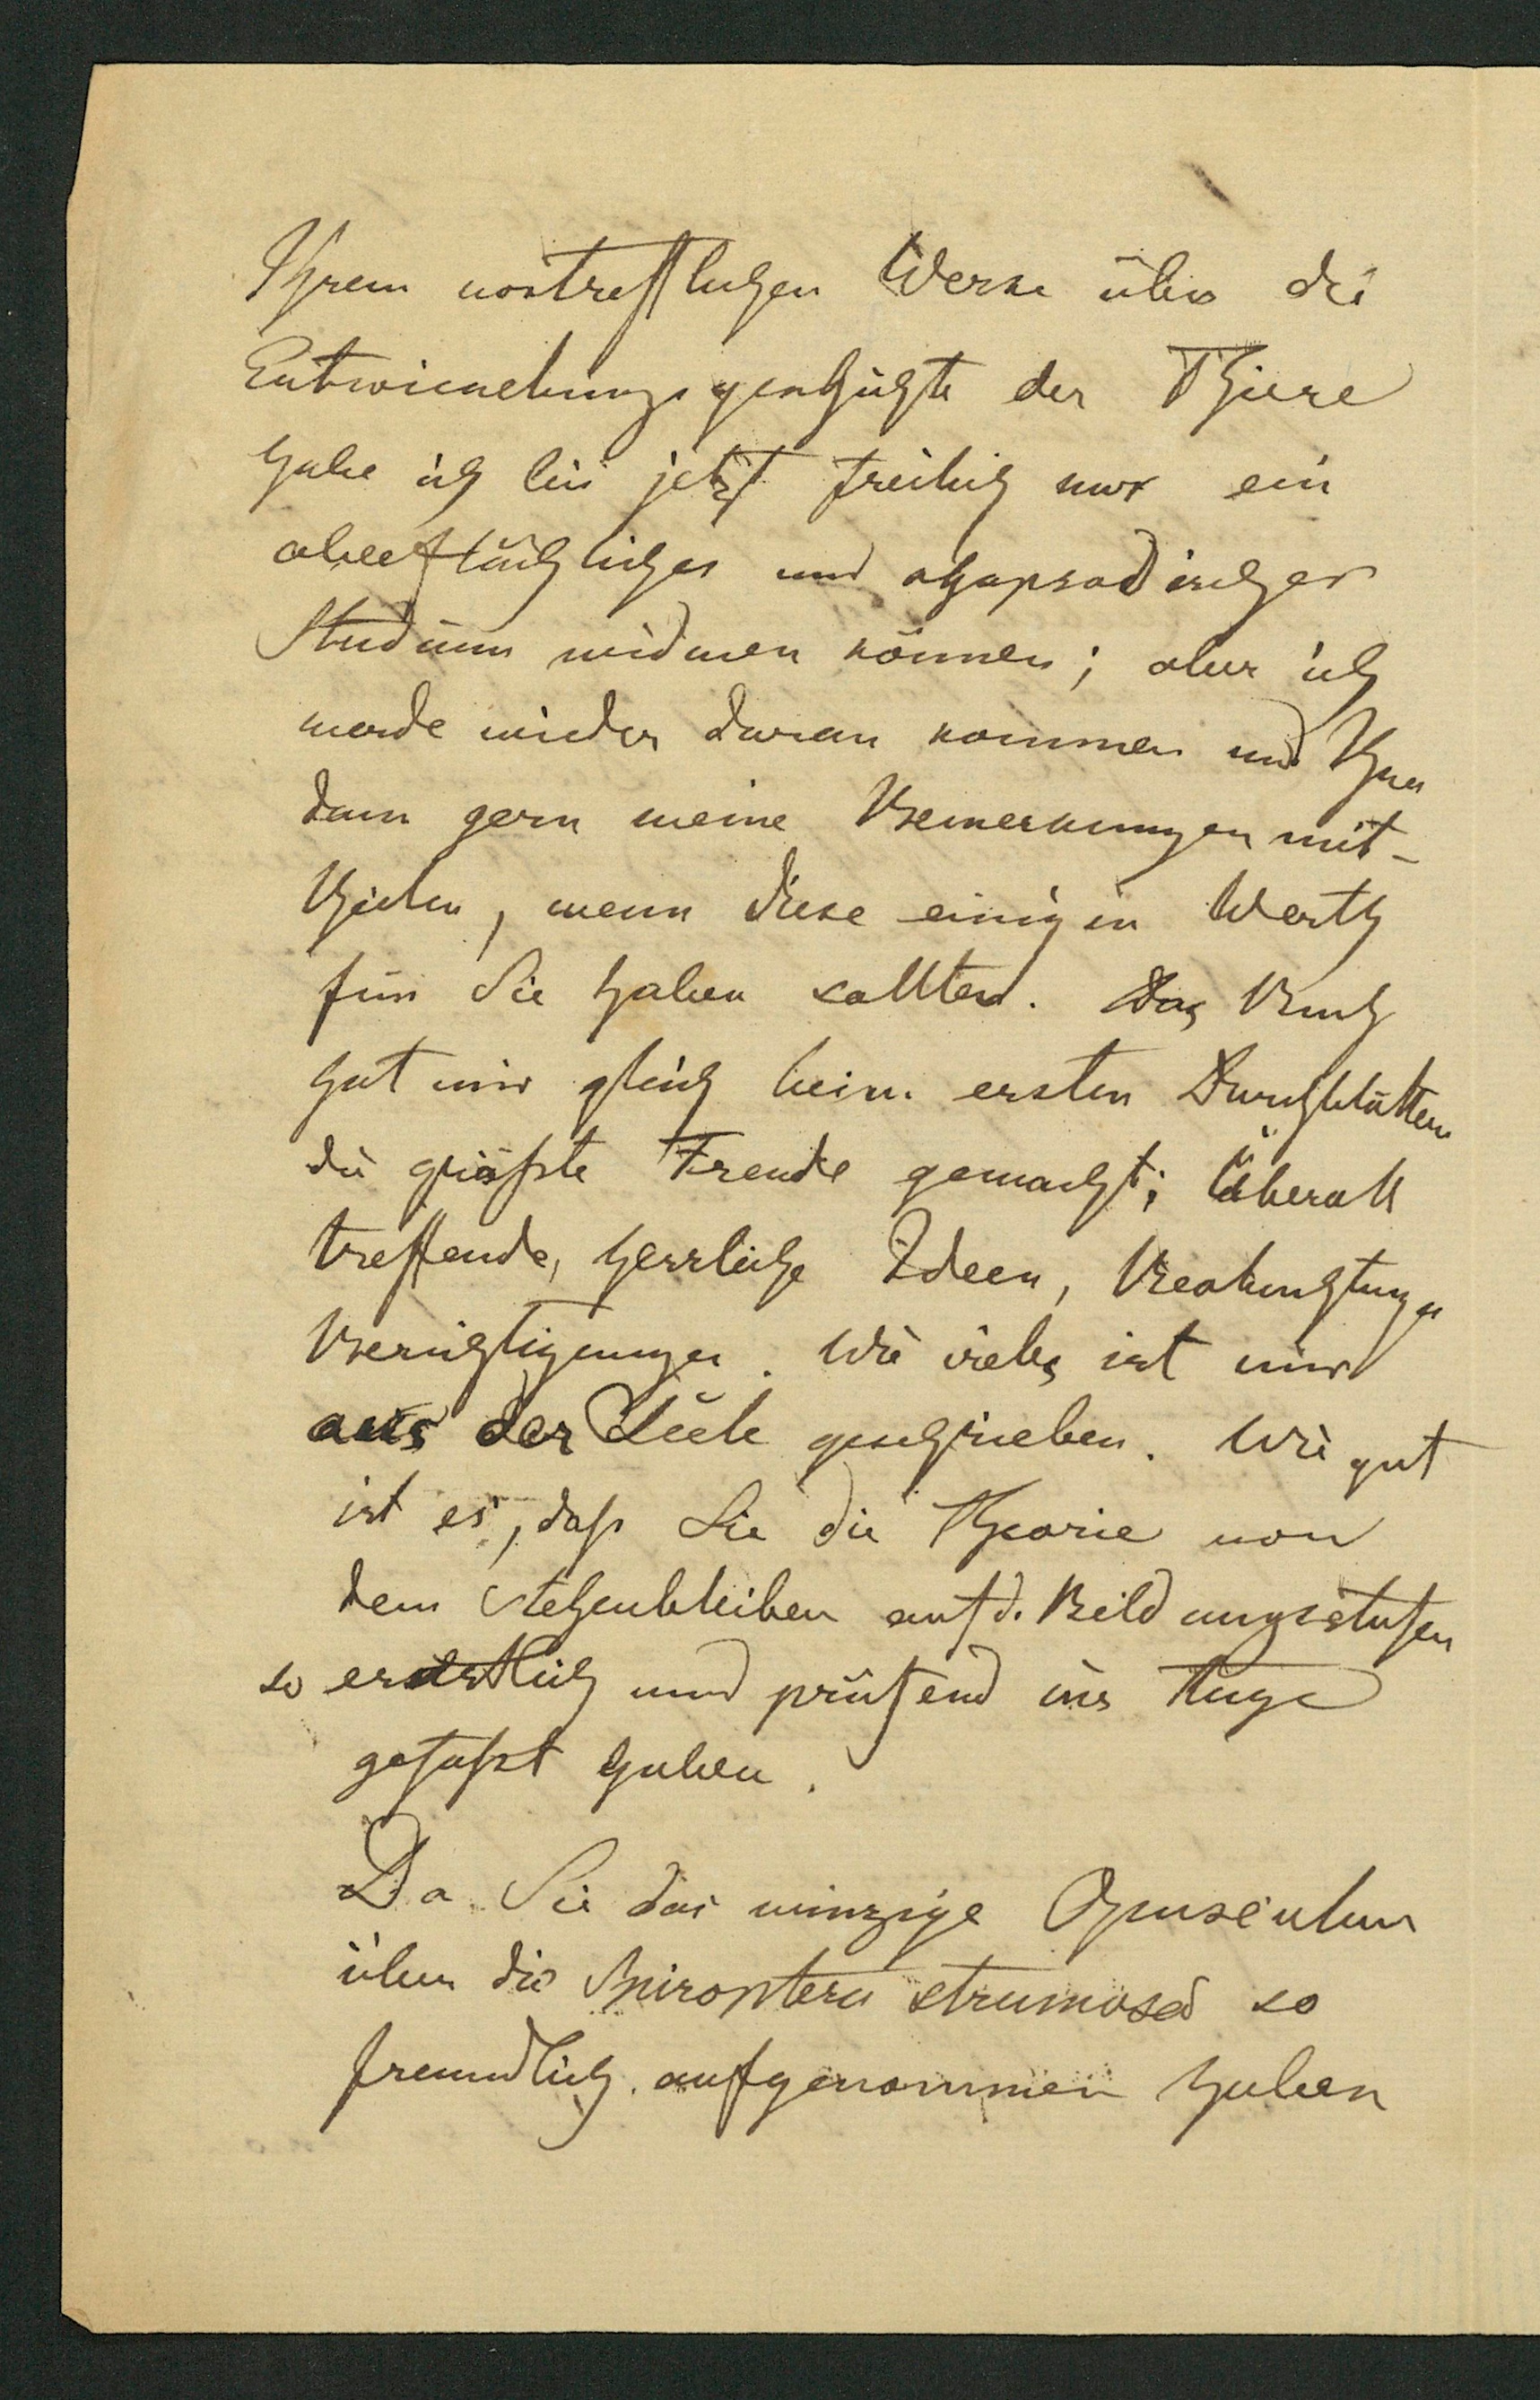 Ihrem vortrefflichen Werke über die
Entwickelungsgeschichte der Thiere
habe ich bis jetzt freilich nur ein
oberflächliches und rhapsodisches
Studium widmen können; aber ich
werde wieder daran kommen und Ihnen
dann gern meine Bemerkungen mit-
theilen, wenn diese einigen Werth
für Sie haben sollten. Das Buch
hat mir gleich beim ersten Durchblättern
die größte Freude gemacht; Überall
treffende, herrliche Ideen, Beobachtungen
Berichtigungen. Wie vieles ist mir
aus der Seele geschrieben. Wie gut
ist es, daß Sie die Theorie von
dem Stehenbleiben auf d. Bildungsstufen
so ernstlich und prüfend ins Auge
gefaßt haben.
Da Sie das winzige Opusculum
über die Spiroptera strumosa so
freundlich aufgenommen haben